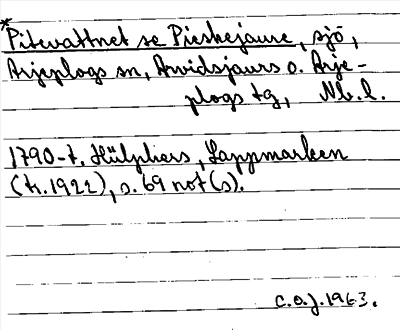 *
Pitevattnet se Pieskejaure, sjö,
Arjeplogs sn, Arvidsjaurs o. Arje-
plogs tg, Nb.l.
1790-t. Hülphers, Lappmarken
(tr. 1922), s. 69 not (s).
c.o.j. 1963.